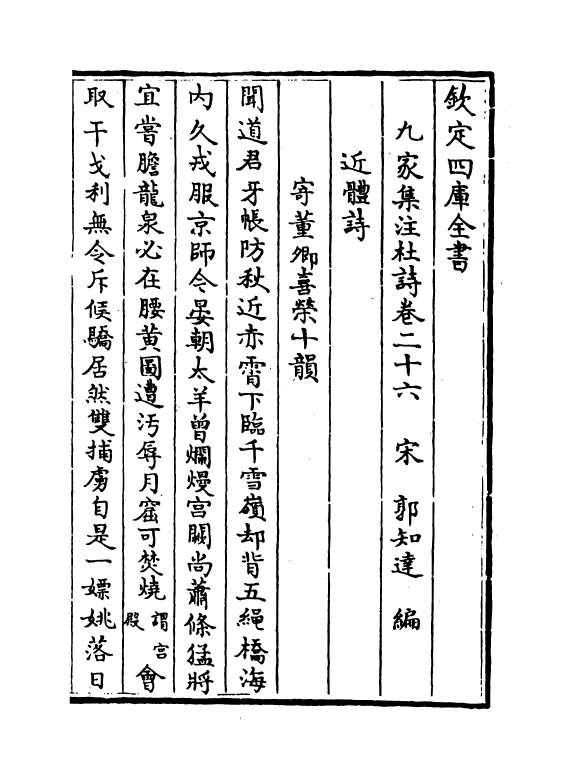 欽定四庫全書
九家集注杜詩卷二十六 宋 郭知達 編
近體詩
寄董卿喜榮十韻
聞道君牙帳防秋近赤霄下臨千雪嶺却背五繩橋海
內久戎服京師今晏朝犬羊曾爛熳宮闕尚蕭條猛將
宜嘗膽龍泉必在腰黃圖遭汚辱月窟可焚燒謂宮殿會
取干戈利無令斥候驕居然雙捕虜自是一嫖姚落日